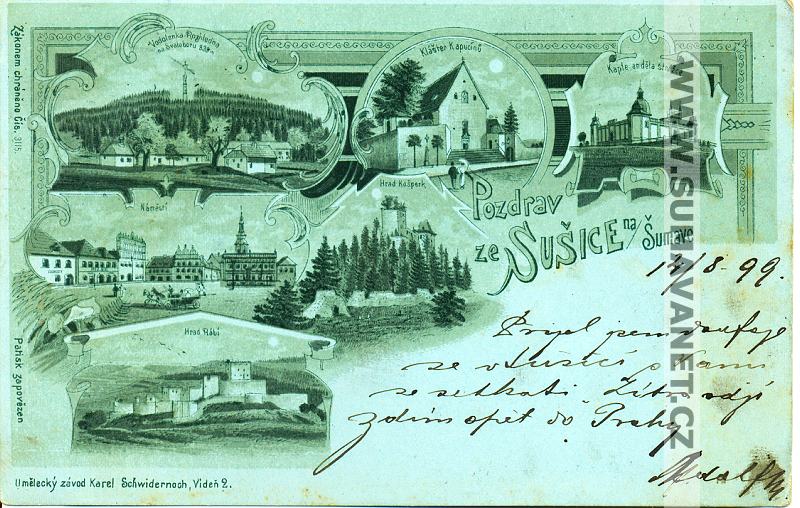 Vodolenka Rozhledna
na Svatoboru 839 m
Klášter Kapucínů
Kaple anděla strážce
Zákonem chráněno Čís. 3115.
Hrad Kašperk
Náměstí
Pozdrav
ze SUŠICE na/Šumavě
14/8-99.
Hrad Rábí
Přijel jsem doufaje
se v Sušici s Vámi
se setkati. Zítra odjí
zdím opět do Prahy
Adolf
Patisk zapovězen
Umělecký závod Karel Schwidernoch, Vídeň 2.
WWW.SUMAVANET.CZ